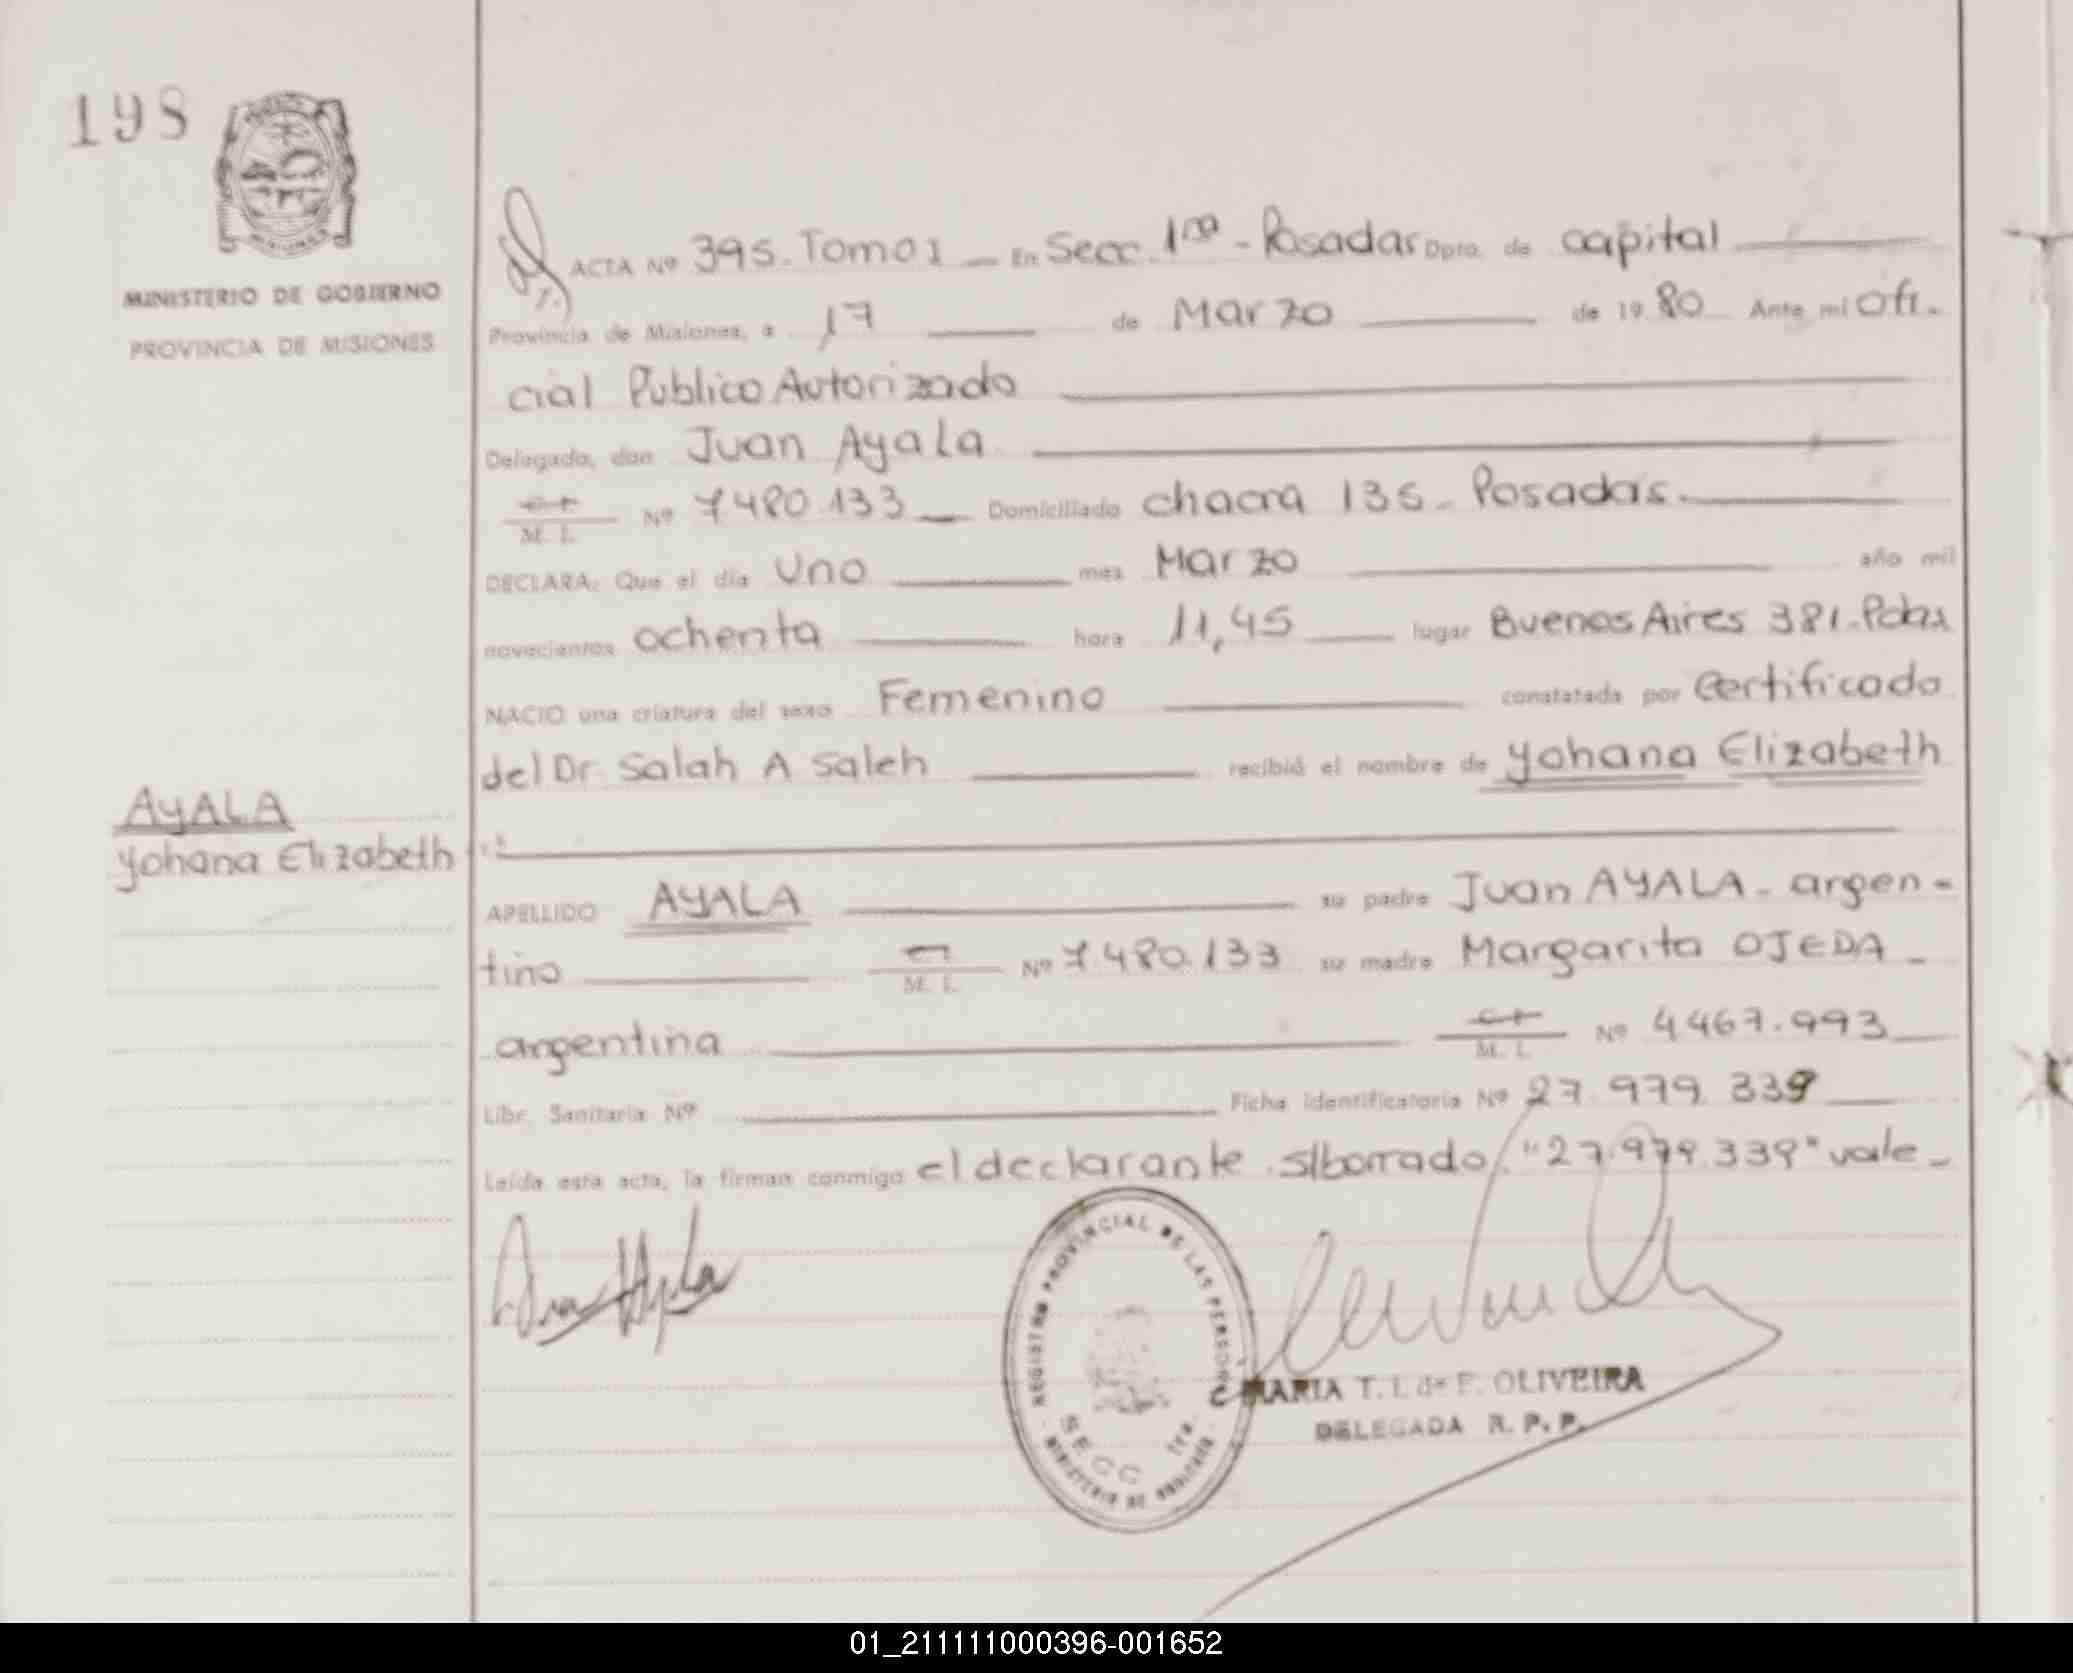 198
MINISTERIO DE GOBIERNO
PROVINCIA DE MISIONES
ACTA Nº 395. Tomo 1 En Secc. 1ra - Posadas Dpto. de capital
Provincia de Misiones, a 17 de Marzo de 1980 Ante mi Ofi-
cial Publico Autorizado
Delegado, don Juan Ayala
M. I. Nº 7480.133 Domiciliado chacra 136 - Posadas.
DECLARA: Que el día Uno mes Marzo año mil
novecientos ochenta hora 11,45 lugar Buenos Aires 381. Pdas
NACIO una criatura del sexo Femenino constatada por Certificado
del Dr. Salah A Saleh recibió el nombre de Yohana Elizabeth
AYALA
Yohana Elizabeth
APELLIDO AYALA su padre Juan AYALA - argen-
tino M. I. Nº 7.480.133 su madre Margarita OJEDA -
argentina M. I. Nº 4467.993
Libr. Sanitaria Nº Ficha Identificatoria Nº 27.979.339
Leída esta acta, la firman conmigo el declarante. s/borrado: "27.979.339" vale -
REGISTRO PROVINCIAL DE LAS PERSONAS
SECC 1ra.
MINISTERIO DE GOBIERNO
MARIA T. I. de F. OLIVEIRA
DELEGADA R. P. P.
01_211111000396-001652